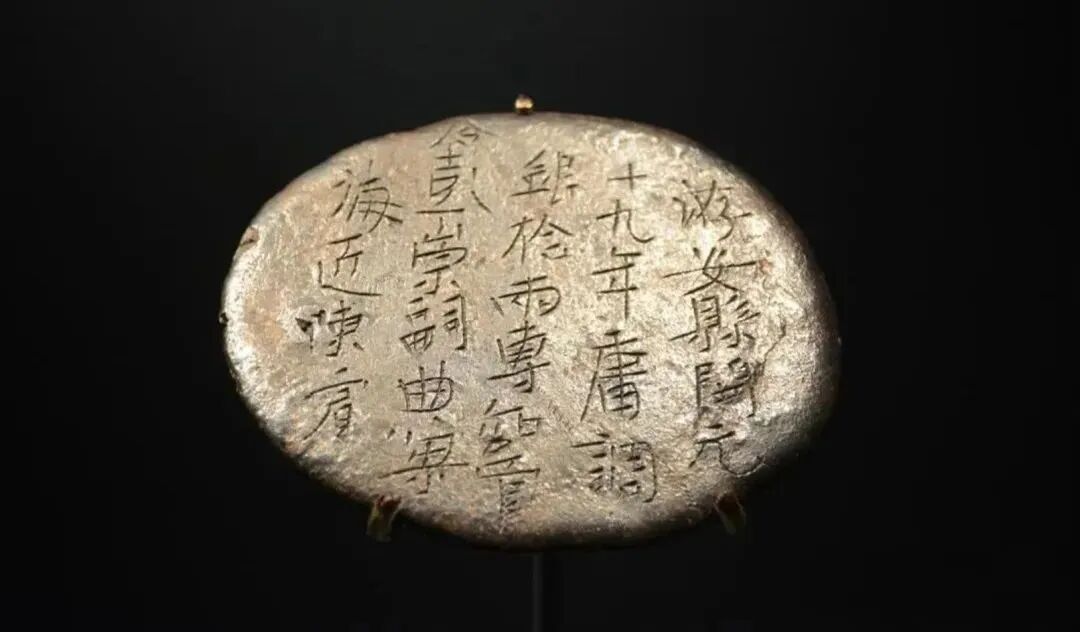 洊安縣開元
十九年庸調
銀拾兩專知官
令彭崇嗣典梁
海匠陳賓